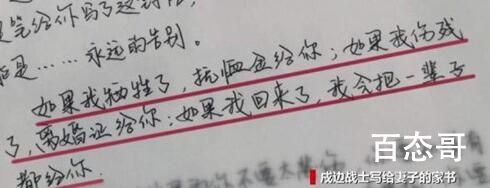 笔给你写了这封
是……永远的告别。
如果我牺牲了，抚恤金给你；如果我伤残
了，离婚证给你；如果我回来了，我会把一辈子
都给你.
不要太
百态哥
戍边战士写给妻子的家书